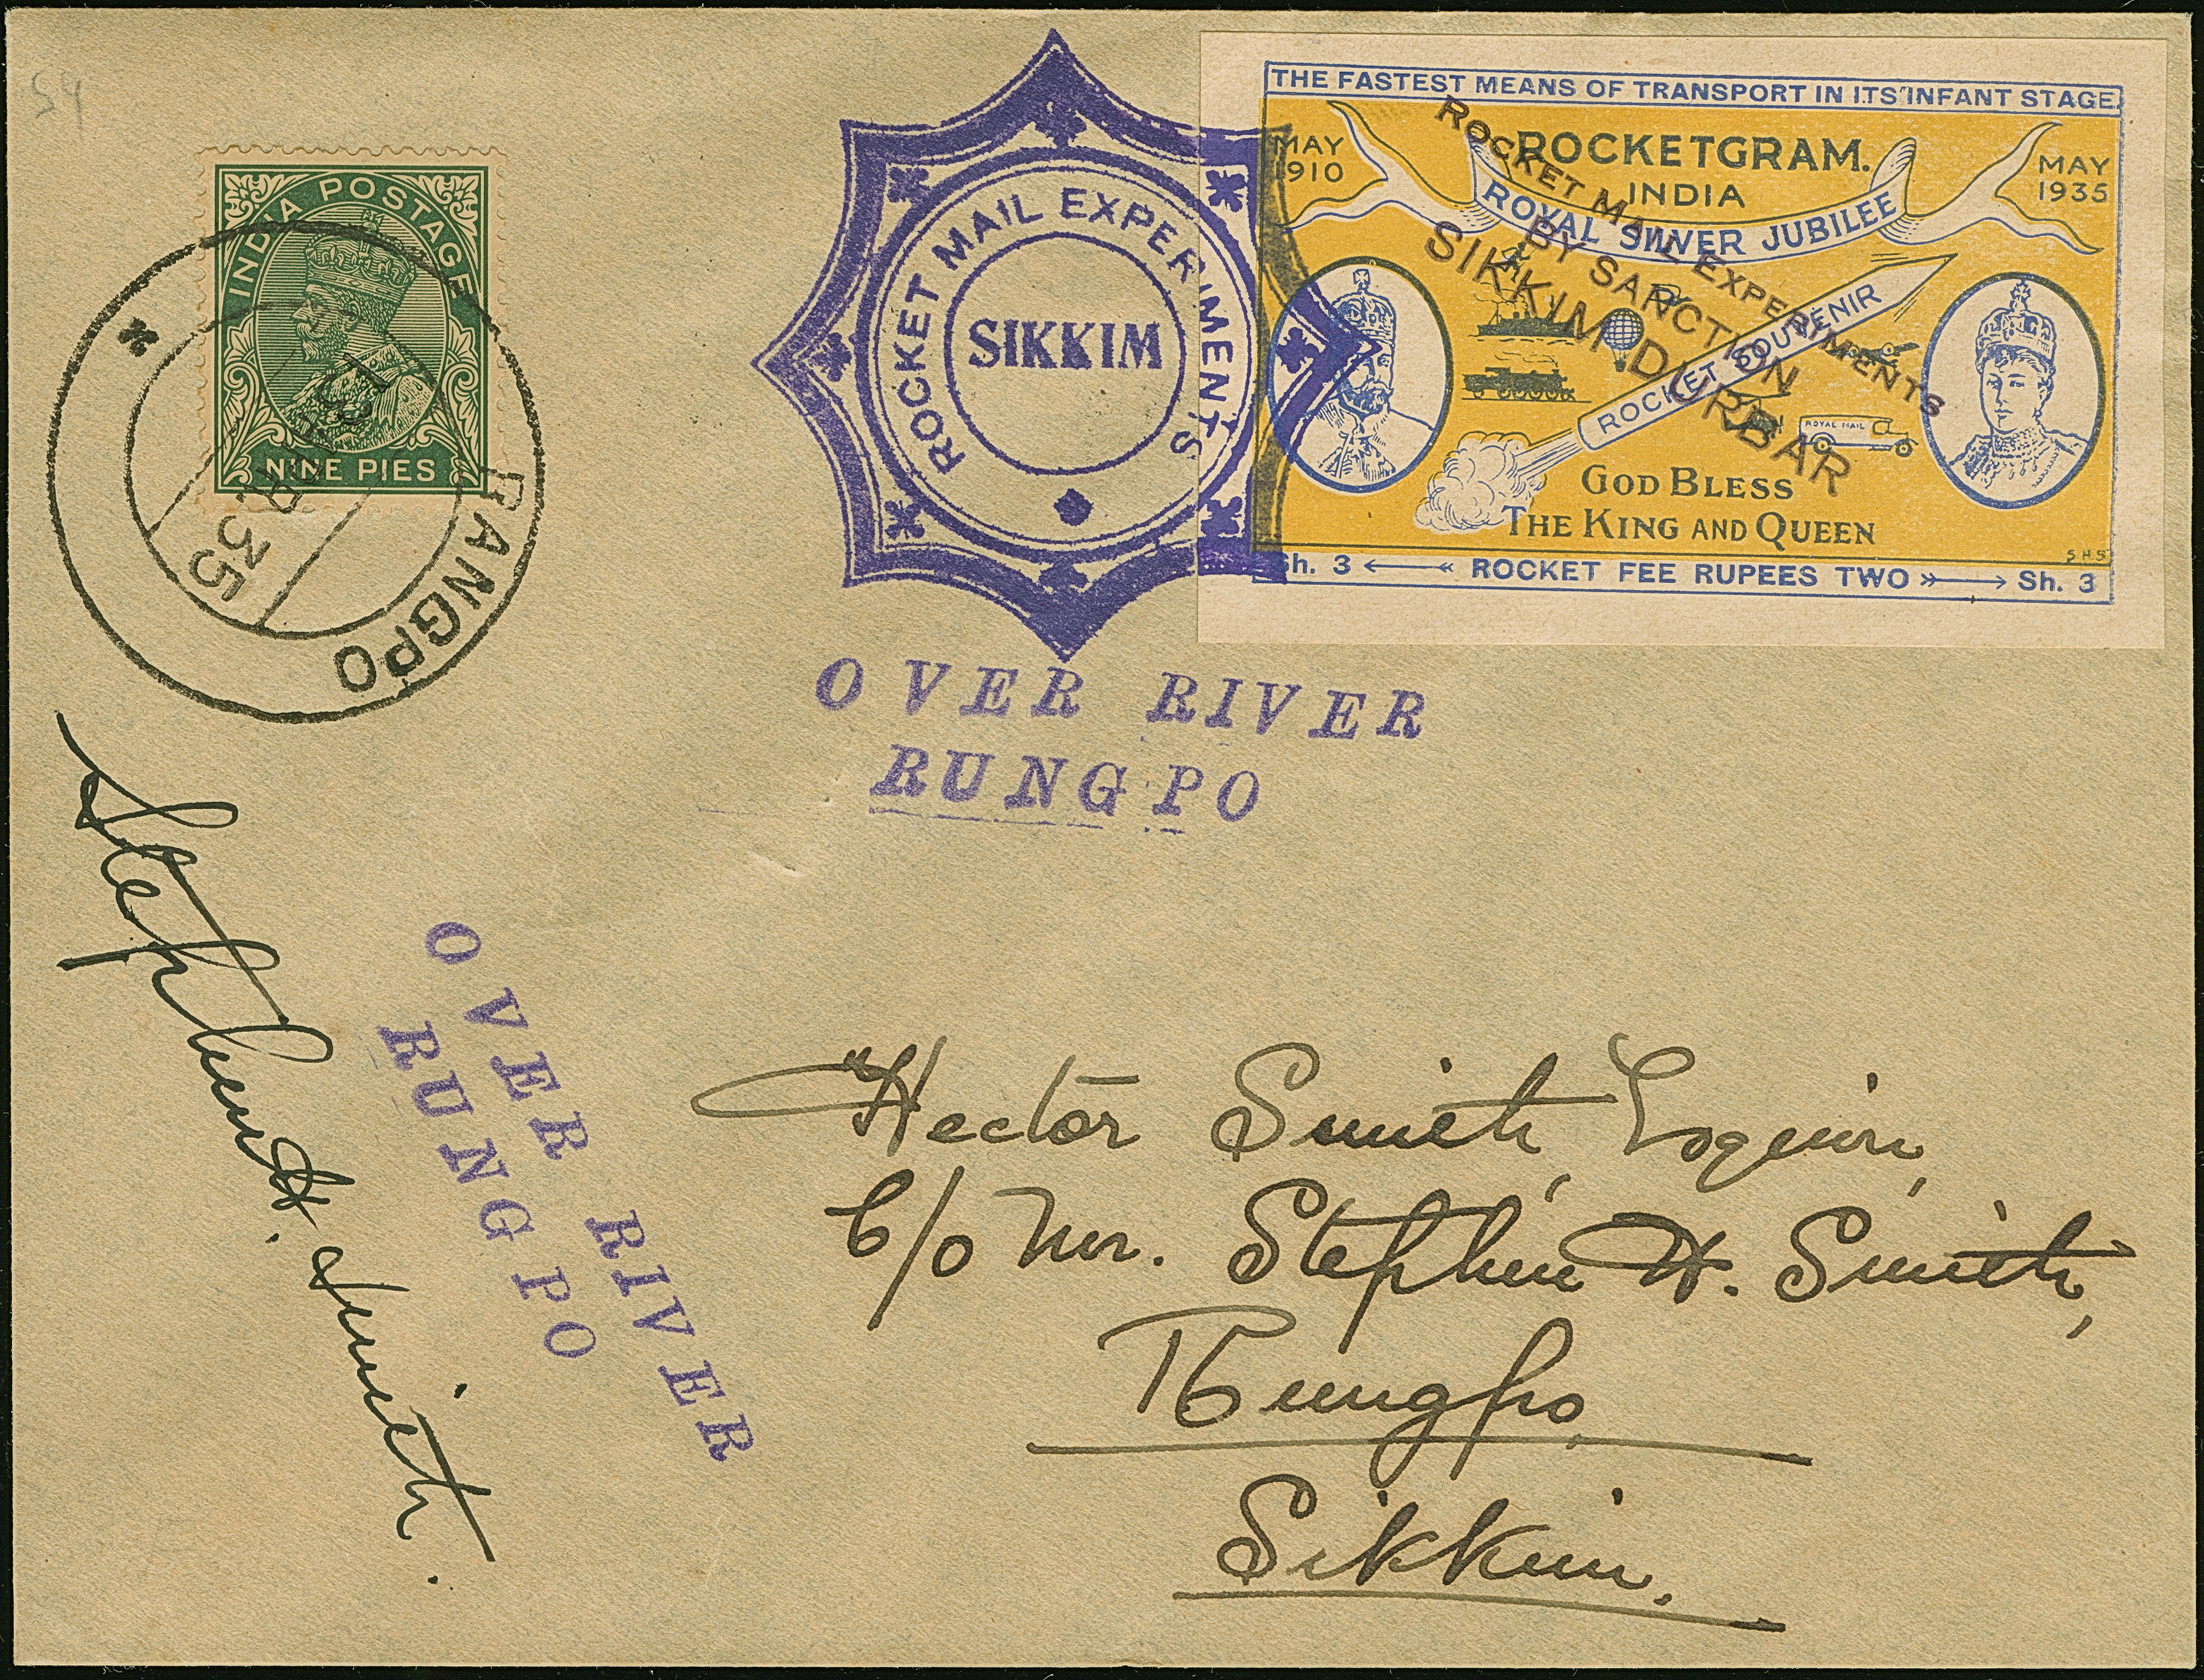 54
INDIA POSTAGE
NINE PIES
RANGPO
APR. 35
ROCKET MAIL EXPERIMENTS
SIKKIM
THE FASTEST MEANS OF TRANSPORT IN ITS INFANT STAGE
MAY 1910
ROCKETGRAM.
INDIA
MAY 1935
ROYAL SILVER JUBILEE
ROCKET SOUVENIR
ROYAL MAIL
GOD BLESS
THE KING AND QUEEN
S.H.S
Sh. 3 ROCKET FEE RUPEES TWO Sh. 3
ROCKET MAIL EXPERIMENTS
BY SANCTION
SIKKIM DURBAR
OVER RIVER
RUNGPO
Stephen H. Smith.
OVER RIVER
RUNGPO
Hector Smith, Esquire,
C/o Mr. Stephen H. Smith,
Rungpo
Sikkim.